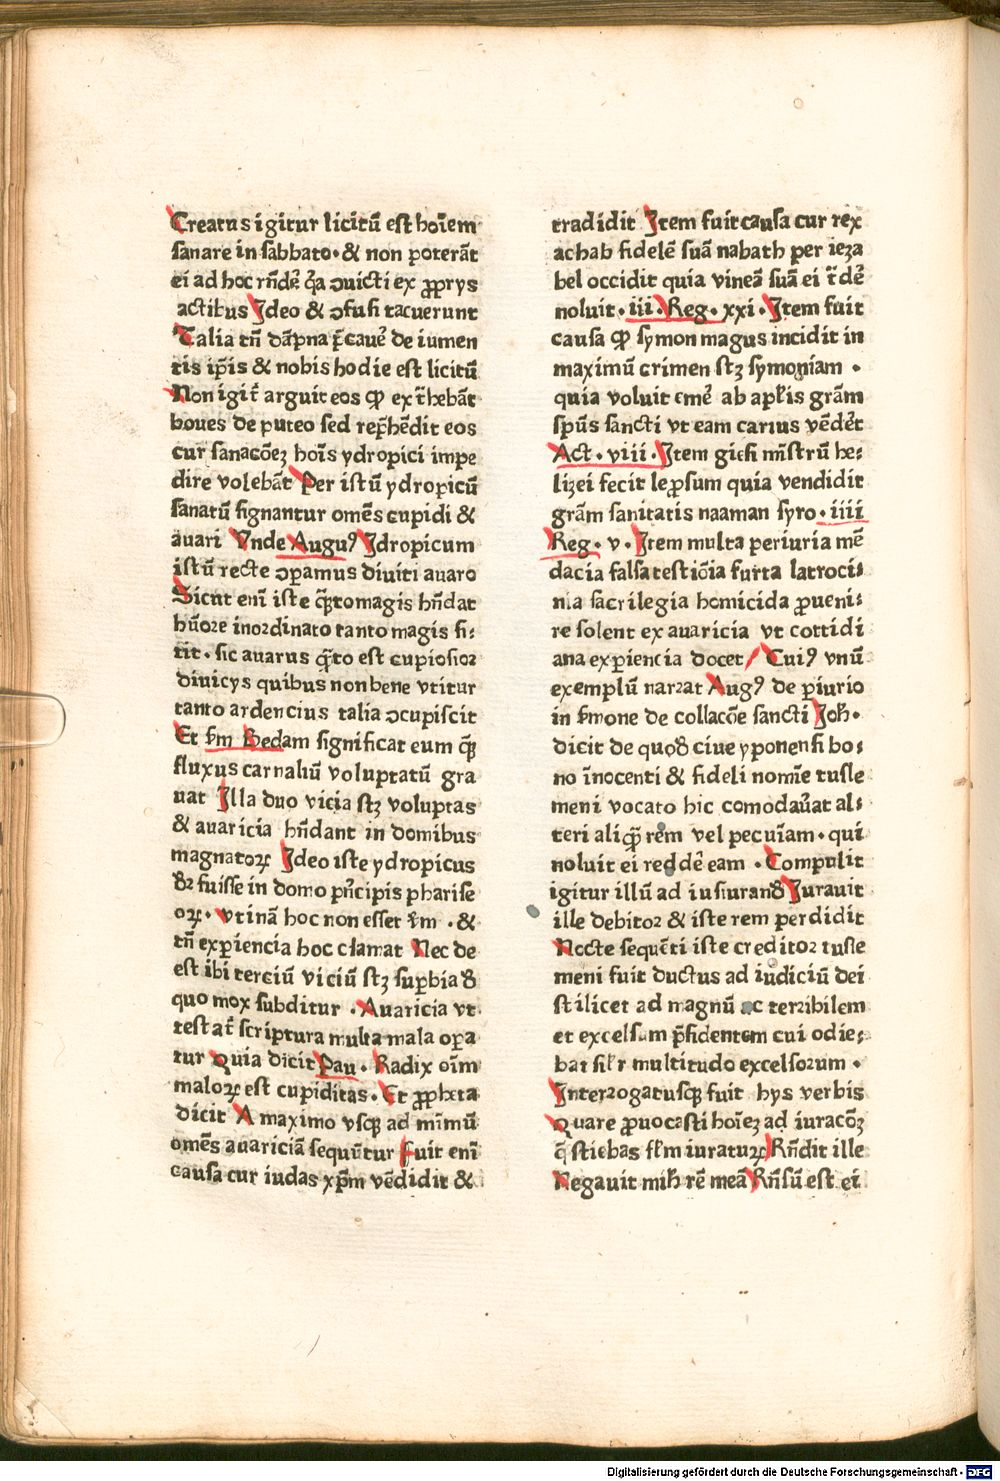 Creatus igitur licitū est hoīem
sanare in sabbato· & non poterāt
ei ad hoc rn̄dē q̄a ↄuicti ex ꝓprys
actibus Jdeo & ↄfusi tacuerunt
Talia tn̄ dāpna p̄cauē de iumen
tis ip̄is & nobis hodie est licitū
Non igit̄ arguit eos ꝙ ext̄hebāt
boues de puteo sed rep̄hēdit eos
cur sanacōeꝫ hoīs ydropici impe
dire volebāt Per istū ydropicū
sanatū signantur omēs cupidi &
auari Vnde Auguꝰ Jdropicum
istū recte ↄparamus diuiti auaro
Sicut enī iste q̄ꝫtomagis hn̄dat
hūore inordinato tanto magis si⸗
tit· sic auarus q̄ꝫto est cupiosior
diuicys quibus non bene vtitur
tanto ardencius talia ↄcupiscit
Et s̄m Bedam significat eum q̄ꝫ
fluxus carnaliū voluptatū gra
uat Jlla duo vicia stꝫ voluptas
& auaricia hn̄dant in domibus
magnatoꝝ Jdeo iste ydropicus
dr̄ fuisse in domo pn̄cipis pharise
oꝝ· vtinā hoc non esset v̄m · &
tn̄ exꝑiencia hoc clamat Nec de
est ibi terciū viciū stꝫ suꝑbia ꝺ
quo mox subditur · Auaricia vt
testat̄ scriptura multa mala oꝑa
tur Quia dicit Pau· Radix oīm
maloꝝ est cupiditas· Et ꝓpheta
dicit A maximo vsqꝫ ad mīmū
omēs auariciā sequūtur Fuit enī
causa cur iudas xp̄m vēdidit &
tradidit Jtem fuit causa cur rex
achab fidelē suā nabath per ieza
bel occidit quia vineā suā ei t̄dē
noluit· iii· Reg· xxi· Jtem fuit
causa ꝙ symon magus incidit in
maximū crimen stꝫ symoniam ·
quia voluit emē ab apl̄is grām
spūs sancti vt eam carius vēdēt
Act· viii· Jtem giesi mīstrū he⸗
lizei fecit leꝓsum quia vendidit
grām sanitatis naaman syro· iiii
Reg· v· Jtem multa periuria mē
dacia falsa testiōia furta latroci⸗
nia sacrilegia homicida ꝓueni⸗
re solent ex auaricia vt cottidi
ana exꝑiencia docet/ Cuiꝰ vnū
exemplū narrat Augꝰ de ꝑiurio
in s̄mone de collacōe sancti Joh̄·
dicit de quoꝺ ciue yponensi bo⸗
no īnocenti & fideli nomīe tusle
meni vocato hic comodau̓at al⸗
teri aliq̄ꝫ rem vel pecuīam· qui
noluit ei reddē eam · Compulit
igitur illū ad iusiuranꝺ Jurauit
ille debitor & iste rem perdidit
Nocte sequēti iste creditor tusle
meni fuit ductus ad iudiciū dei
stilicet ad magnū ac terribilem
et excelsum p̄sidentem cui odie⸗
bat sil̄r multitudo excelsorum ·
Jnterrogatusqꝫ fuit hys verbis
Quare ꝓuocasti hoīeꝫ ad iuracōꝫ
q̄ stiebas fl̄m iuratuꝝ Rn̄dit ille
Negauit mih̄ rē meā Rn̄sū est ei
Digitalisierung gefördert durch die Deutsche Forschungsgemeinschaft - DFG